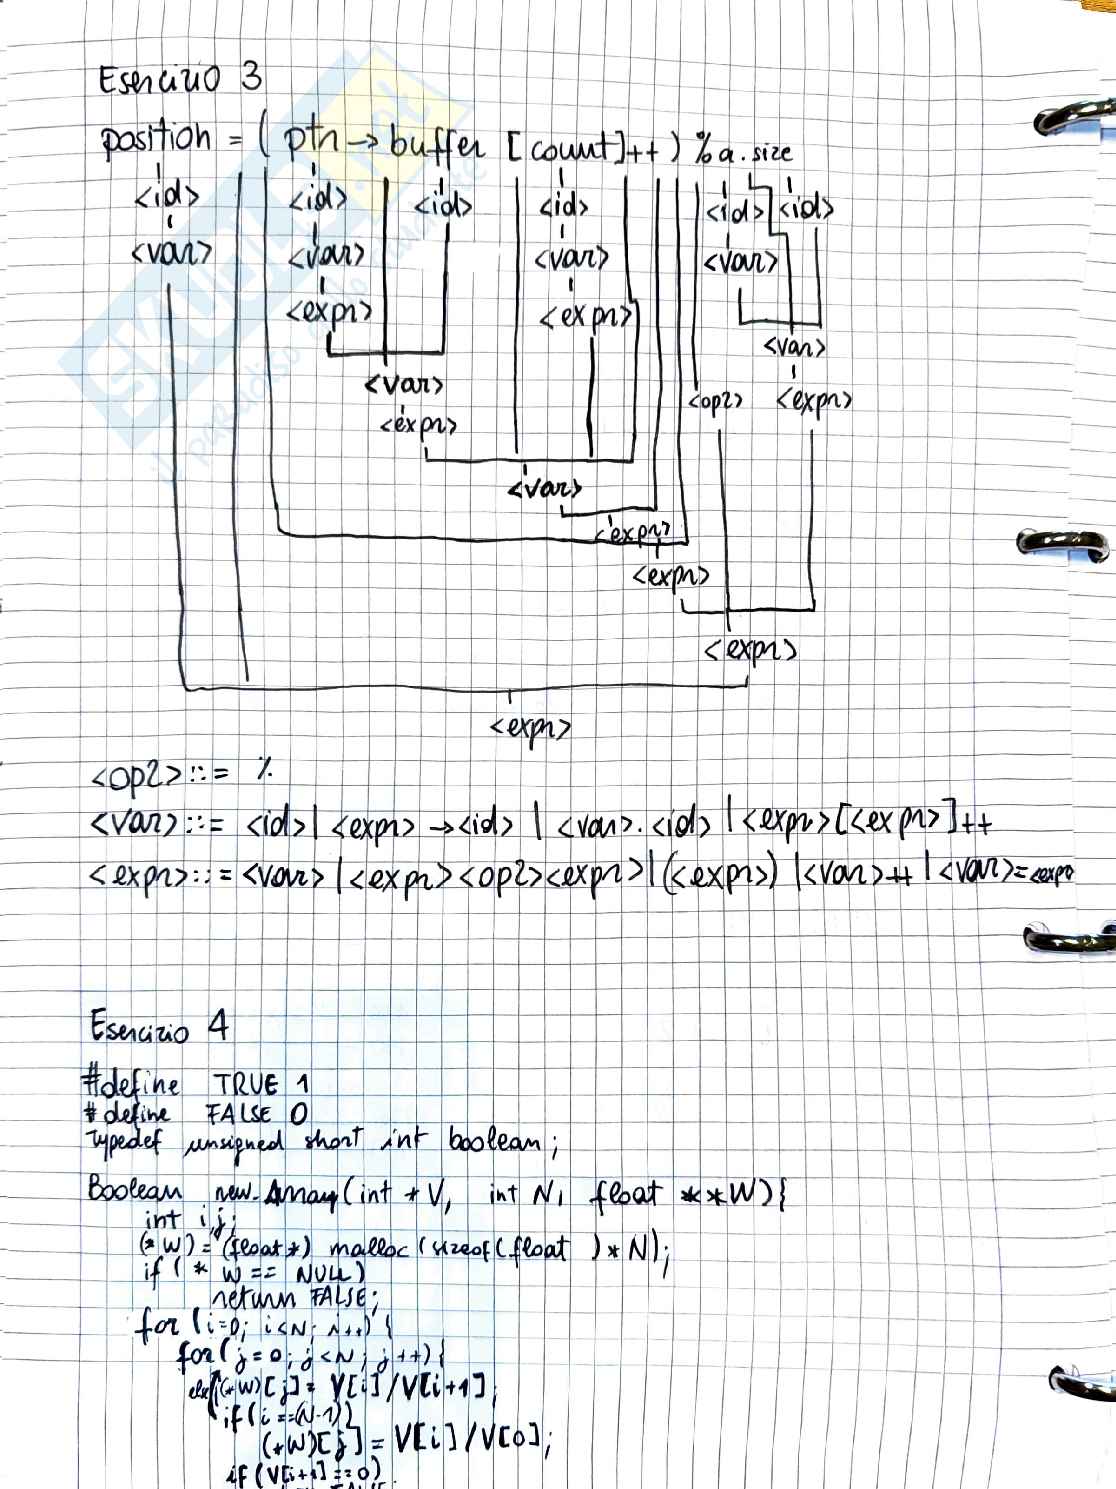 Esercizio 3
position = ( ptr -> buffer [ count ]++ ) % a . size
<id> <id> <id> <id> <id> <id>
<var> <var> <var> <var>
<expr> <expr>
<var>
<var> <op2> <expr>
<expr>
<var>
<expr>
<expr>
<expr>
<expr>
<op2> ::= %
<var> ::= <id> | <expr> -> <id> | <var>.<id> | <expr>[<expr>]++
<expr> ::= <var> | <expr><op2><expr> | (<expr>) | <var>++ | <var>=<expr
Esercizio 4
#define TRUE 1
#define FALSE 0
Typedef unsigned short int boolean;
Boolean new_Array(int *V, int N, float **W){
int i,j;
(*W) = (float*) malloc (sizeof(float ) * N);
if ( * W == NULL)
return FALSE;
for (i=0; i<N; i++) {
for(j=0; j<N; j++){
else (*W)[j] = V[i]/V[i+1];
if(i==(N-1))
(*W)[j] = V[i]/V[0];
if(V[i+1]==0)
SKUOLA.net
il paradiso dello studente